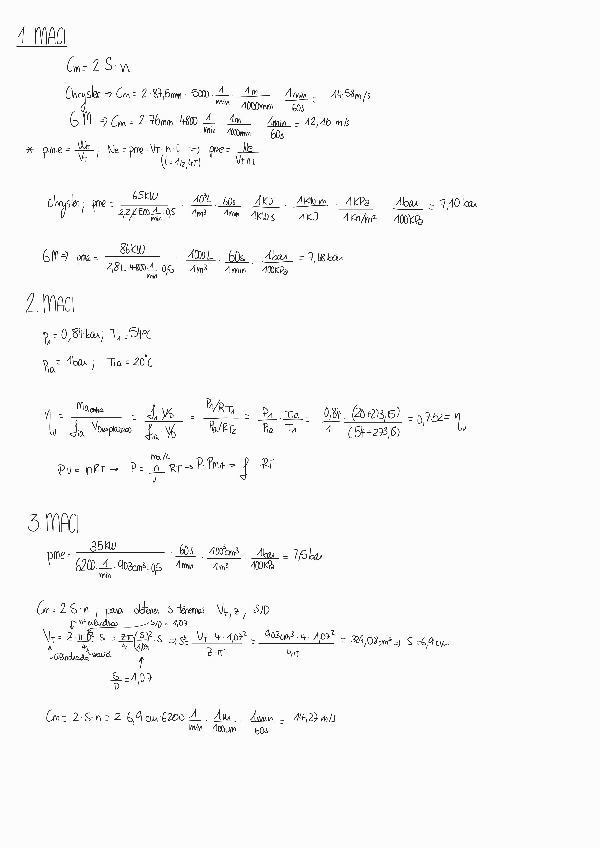 1. MACI
Cm = 2 S · n
Chrysler → Cm = 2 · 87,5mm · 5000 · 1/min · 1m/1000mm · 1min/60s = 14.58m/s
GM → Cm = 2 · 76mm · 4800 1/min · 1m/1000mm · 1min/60s = 12,16 m/s
* pme = /VT ; Ne = pme · VT · n · i → pme = Ne/VT n i
(i = 1/2, 4T)
Chrysler; pme = 65KW / 2,2 · 1/min · 0,5 · 10³L/1m³ · 60s/1min · 1KJ/1KW s · 1KN m/1KJ · 1KPa/1Kn/m² · 1bar/100KPa = 7,10 bar
GM → pme = 86KW / 2,8L · 4800 · 1/min · 0,5 · 1000L/1m³ · 60s/1min · 1bar/100KPa = 7,68 bar
2. MACI
P1 = 0,84 bar; T1 = 54ºC
Pia = 1bar ; Tia = 20ºC
= P1/RT1 / = P1/Pia · Tia/T1 = 0,84/1 · (20+273,15)/(54+273,15) = 0,752 = ηv
PV = nRT → P = n/v RT → P · PMA = ρ · RT
3. MACI
pme = 35KW / 6200 · 1/min · 903cm³ · 0,5 · 60s/1min · 100³cm³/1m³ · 1bar/100KPa = 7,5 bar
Cm = 2 · S · n , para obtener S tenemos VT, z, S/D
nº cilindros S/D = 1,07
VT = z π D²/4 · S = zπ/4 (S/1,07)² · S → S³ = VT · 4 · 1,07²/z π = 903cm³ · 4 · 1,07²/4π = 329,08cm³ → S = 6,9 cm
cilindrada
S/D = 1,07
Cm = 2 · S · n = 2 · 6,9 cm · 6200 1/min · 1m/100cm · 1min/60s = 14,27 m/s